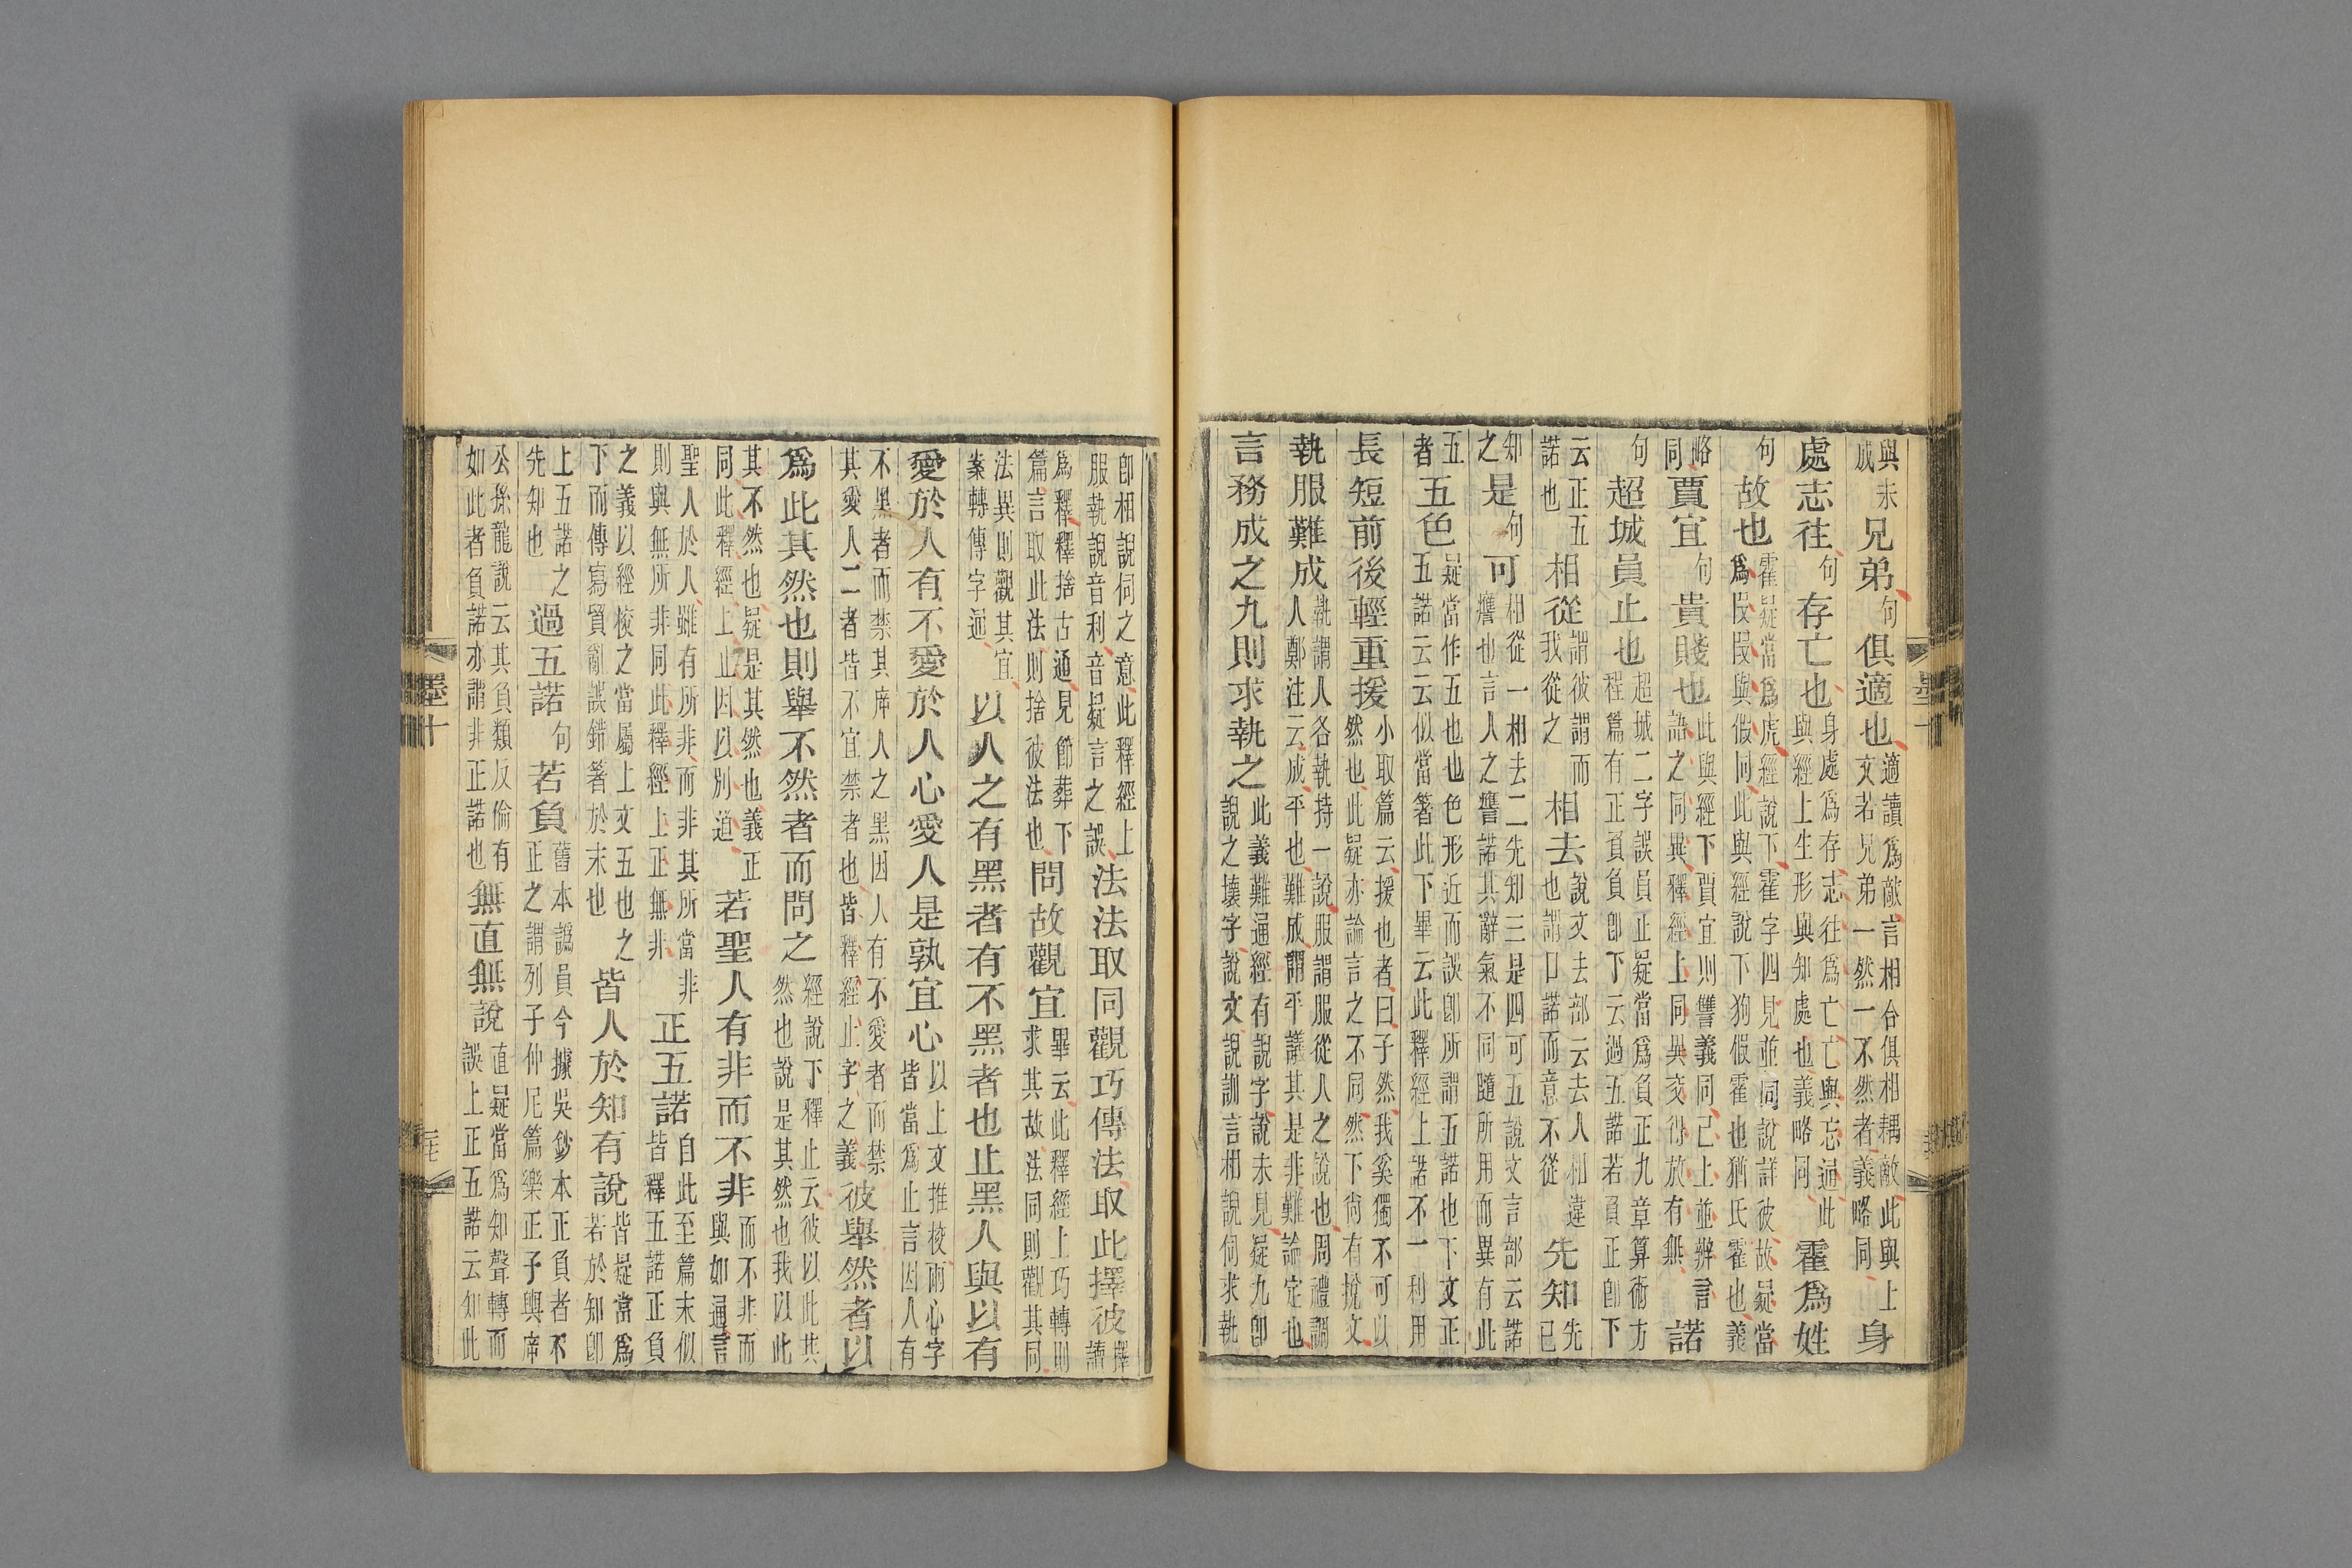 與未
成
兄弟
句
俱適也
適讀爲敵言相合俱相耦敵此與上
文若兄弟一然一不然者義略同
身
處志往
句
存亡也
身處爲存志往爲亡亡與忘通此
與經上生形與知處也義略同
霍爲姓
句
故也
霍疑當爲虎經說下霍字四見並同說詳彼故疑當
爲叚叚與假同此與經說下狗假霍也猶氏霍也義
略
同
賈宜
句
貴賤也
此與經下賈宜則讐義同己上並辨言
語之同異釋經上同異交得放有無
諾
句
超城員止也
超城二字誤員止疑當爲負正九章算術方
程篇有正負負卽下云過五諾若負正卽下
云正五
諾也
相從
謂彼謂而
我從之
相去
說文去部云去人相違
也謂口諾而意不從
先知
已先
知
之
是
句
可
相從一相去二先知三是四可五說文言部云諾
𧭭也言人之𧭭諾其辭氣不同隨所用而異有此
五
者
五色
疑當作五也也色形近而誤卽所謂五諾也下文正
五諾云云似當箸此下畢云此釋經上諾不一利用
長短前後輕重援
小取篇云援也者曰子然我奚獨不可以
然也此疑亦論言之不同然下尙有挩文
執服難成
執謂人各執持一說服謂服從人之說也周禮調
人鄭注云成平也難成謂平議其是非難論定也
言務成之九則求執之
此義難通經有說字說未見疑九卽
說之壞字說文說訓言相說伺求執
卽相說伺之意此釋經上
服執說音利音疑言之誤
法法取同觀巧傳法取此擇彼
擇
讀
爲釋釋捨古通見節葬下
篇言取此法則捨彼法也
問故觀宜
畢云此釋經上巧轉則
求其故法同則觀其同
法異則觀其宜
案轉傳字通
以人之有黑者有不黑者也止黑人與以有
愛於人有不愛於人心愛人是孰宜心
以上文推校兩心字
皆當爲止言因人有
不黑者而禁其席人之黑因人有不愛者而禁
其愛人二者皆不宜禁者也皆釋經止字之義
彼舉然者以
爲此其然也則舉不然者而問之
經說下釋止云彼以此其
然也說是其然也我以此
其不然也疑是其然也義正
同此釋經上止因以別道
若聖人有非而不非
而不非而
與如通言
聖人於人雖有所非而非其所當非
則與無所非同此釋經上正無非
正五諾
自此至篇末似
皆釋五諾正負
之義以經校之當屬上文五也之
下而傳寫貿亂誤錯箸於末也
皆人於知有說
皆疑當爲
若於知卽
上五諾之
先知也
過五諾
句
若負
舊本譌員今據吳鈔本正負者不
正之謂列子仲尼篇樂正子輿席
公孫龍說云其負類反倫有
如此者負諾亦謂非正諾也
無直無說
直疑當爲知聲轉而
誤上正五諾云知此
墨十